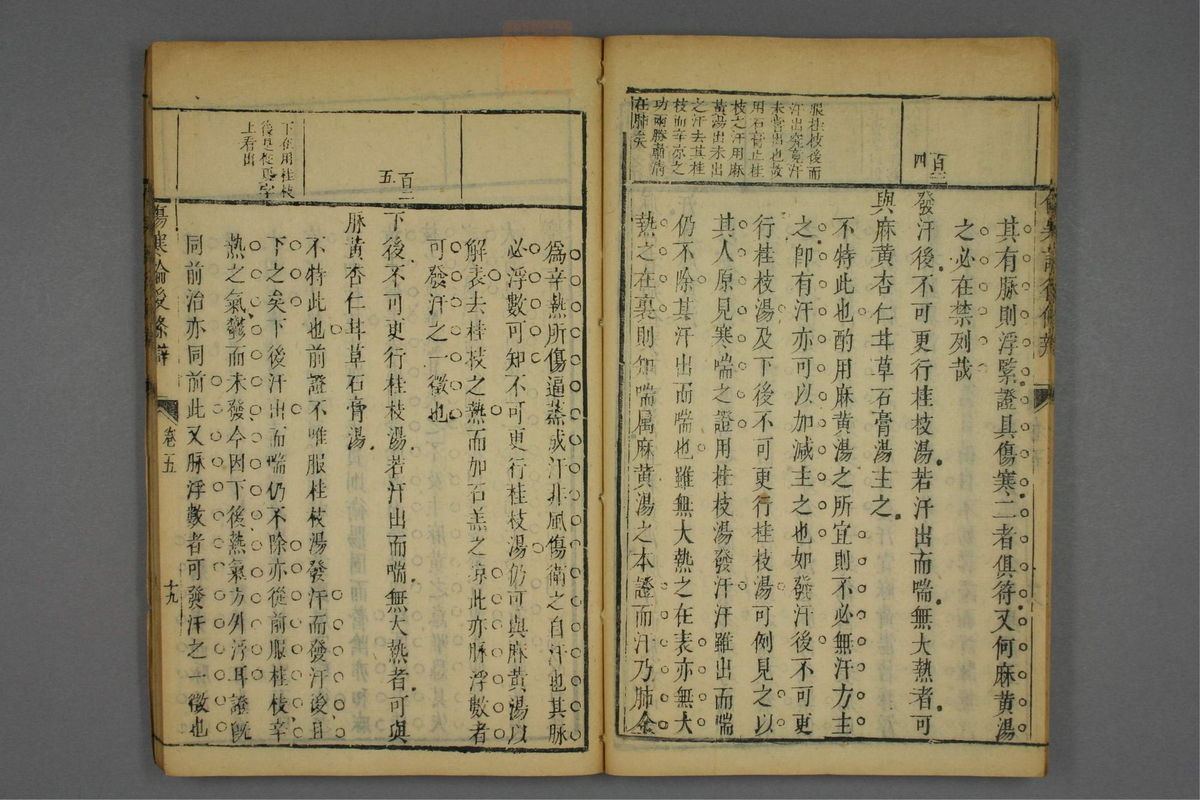 其有脉則浮緊證具傷寒二者俱符又何麻黃湯
之必在禁列哉
百二
四
發汗後不可更行桂枝湯若汗出而喘無大熱者可
與麻黃杏仁甘草石膏湯主之
不特此也酌用麻黃湯之所宜則不必無汗方主
之卽有汗亦可以加減主之也如發汗後不可更
行桂枝湯及下後不可更行桂枝湯可例見之以
其人原見寒喘之證用桂枝湯發汗汗雖出而喘
仍不除其汗出而喘也雖無大熱之在表亦無大
熱之在裏則知喘属麻黃湯之本證而汗乃肺金
服桂枝後而
汗出究竟汗
未嘗出也故
用石膏止桂
枝之汗用麻
黃湯出未出
之汗去其桂
枝而辛凉之
功兩勝肅清
在肺矣
爲辛熱所傷逼蒸成汗非風傷衛之自汗也其脉
必浮數可知不可更行桂枝湯仍可與麻黃湯以
解表去桂枝之熱而加石羔之凉此亦脉浮數者
可發汗之一徵也
百二
五
下後不可更行桂枝湯若汗出而喘無大熱者可與
麻黃杏仁甘草石膏湯
不特此也前證不唯服桂枝湯發汗而發汗後且
下之矣下後汗出而喘仍不除亦從前服桂枝辛
熱之氣鬱而未發今因下後熱氣方外浮耳證旣
同前治亦同前此又脉浮數者可發汗之一徵也
下在用桂枝
後更從更字
上看出
傷寒論後條辯
卷五
十九